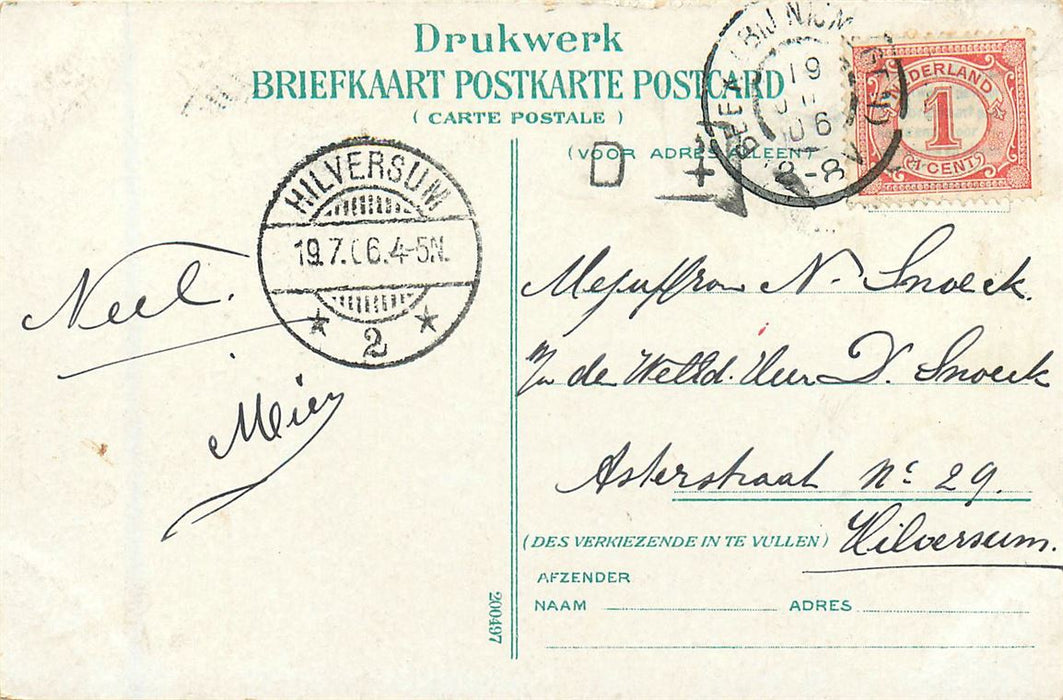 Drukwerk
BRIEFKAART POSTKARTE POSTCARD
( CARTE POSTALE )
(VOOR ADRES ALLEEN)
D
BEEK (BIJ NIJMEGEN)
19
06
8V
NEDERLAND
1
1 CENT
HILVERSUM
19.7.06.4-5N.
2
Neel.
Mien
Mejuffrou N. Snoeck.
de Weled. Heer D. Snoeck
Asterstraat No 29.
Hilversum.
(DES VERKIEZENDE IN TE VULLEN)
AFZENDER
NAAM ADRES
200497